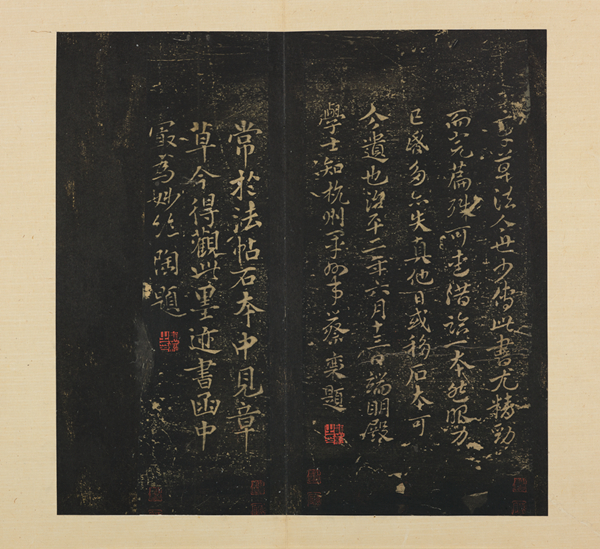 草法今世少傳此書尤精勁
而完篇殊可惜臨一本然眼力
已昏多亦失真他日或移石本可
今遺也治平二年六月十三日端明殿
學士知杭州軍州事蔡襄題
常於法帖石本中見章
草今得觀此墨迹書函中
最為妙絕陶題